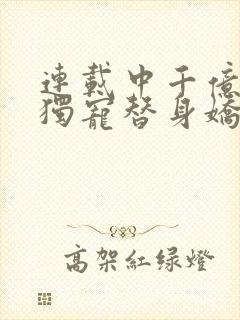 連載中千億
獨寵替身嬌
高架紅绿燈